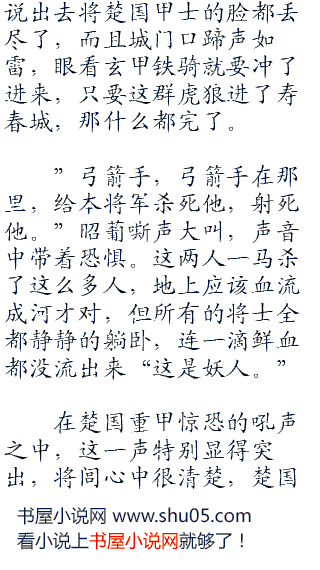 说出去将楚国甲士的脸都丢
尽了，而且城门口蹄声如
雷，眼看玄甲铁骑就要冲了
进来，只要这群虎狼进了寿
春城，那什么都完了。
”弓箭手，弓箭手在那
里，给本将军杀死他，射死
他。”昭蔔嘶声大叫，声音
中带着恐惧。这两人一马杀
了这么多人，地上应该血流
成河才对，但所有的将士全
都静静的躺卧，连一滴鲜血
都没流出来“这是妖人。”
在楚国重甲惊恐的吼声
之中，这一声特别显得突
出，将闾心中很清楚，楚国
书屋小说网 www.shu05.com
看小说上书屋小说网就够了！